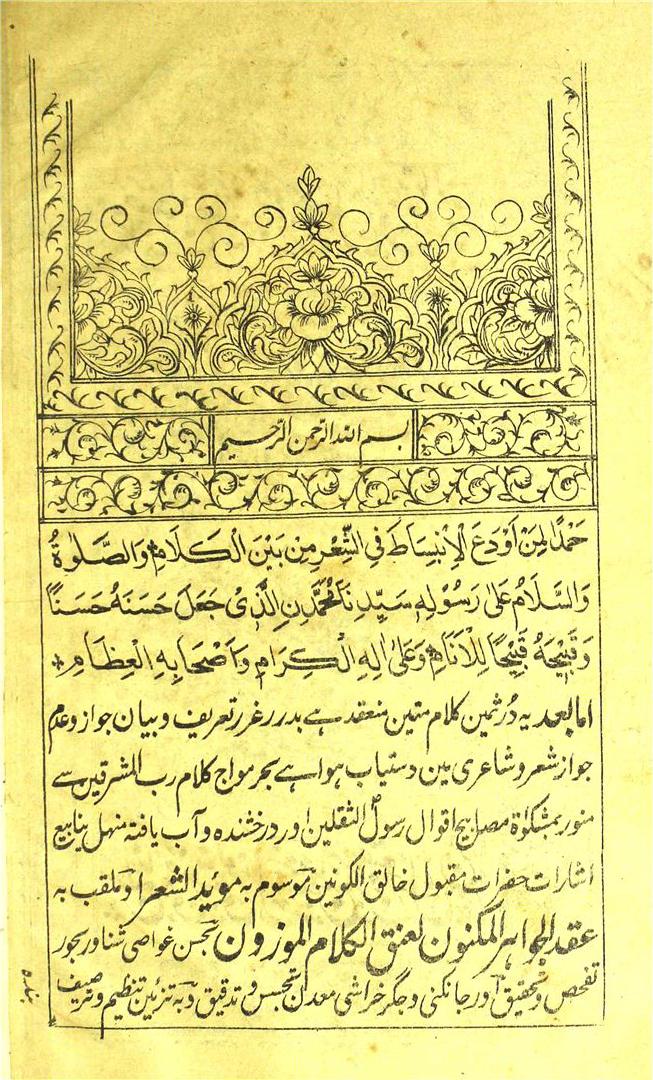 بسم اللہ الرحمن الرحیم
حَمْدًا لِمَنْ اَوْدَعَ الْاِنْبِسَاطَ فِی الشِّعْرِ مِنْ بَیْنِ الْکَلَامِ وَالصَّلٰوةُ
وَالسَّلَامُ عَلٰی رَسُوْلِهٖ سَیِّدِنَا مُحَمَّدِنِ الَّذِیْ جَعَلَ حَسَنَهٗ حَسَنًا
وَقَبِیْحَهٗ قَبِیْحًا لِلْاَنَامِ وَعَلٰی اٰلِهِ الْکِرَامِ وَاَصْحَابِهِ الْعِظَامِ *
اما بعد یہ در ثمین کلام متین منعقد ہے بدرر غرر تعریف و بیان جواز و عدم
جواز شعر و شاعری مین دستیاب ہوا ہے بحر مواج کلام رب المشرقین سے
منور بمشکوٰۃ مصابیح اقوال رسول الثقلین اور درخشندہ و آب یافتہ منہل ینابیع
اشارات حضرات مقبول خالق الکونین موسوم بہ موید الشعرا و ملقب بہ
عقد الجواہر المکنون لعنق الکلام الموزون بحسن غواصی شناور بحور
تفحص و تحقیق اور جانکنی و جگر خراشی معدن تجسس و تدقیق و بہ تزئین تنظیم و ترصیف
بندہ